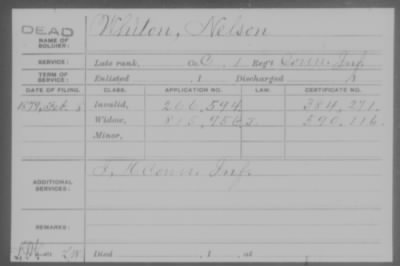 DEAD
NAME OF SOLDIER: Whiton, Nelson
SERVICE: Late rank, Co. C, 1 Reg't Conn. Inf.
TERM OF SERVICE: Enlisted , 1 Discharged , 1
DATE OF FILING. CLASS. APPLICATION NO. LAW. CERTIFICATE NO.
1879, Feb Invalid, 266,594 384,271.
Widow, 590,116.
Minor,
ADDITIONAL SERVICES: Conn. Inf.
REMARKS:
Died , 1 , at